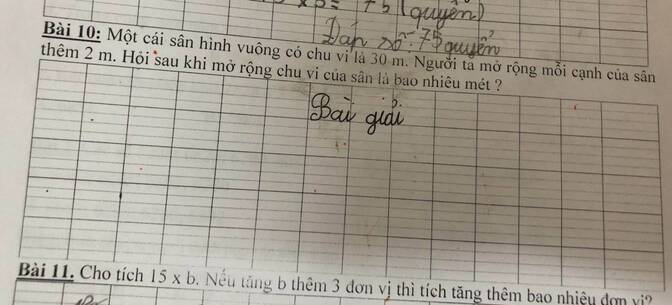 75 (quyển)
Đáp số: 75 quyển
Bài 10: Một cái sân hình vuông có chu vi là 30 m. Người ta mở rộng mỗi cạnh của sân
thêm 2 m. Hỏi sau khi mở rộng chu vi của sân là bao nhiêu mét ?
Bài giải
Bài 11. Cho tích 15 x b. Nếu tăng b thêm 3 đơn vị thì tích tăng thêm bao nhiêu đơn vị?